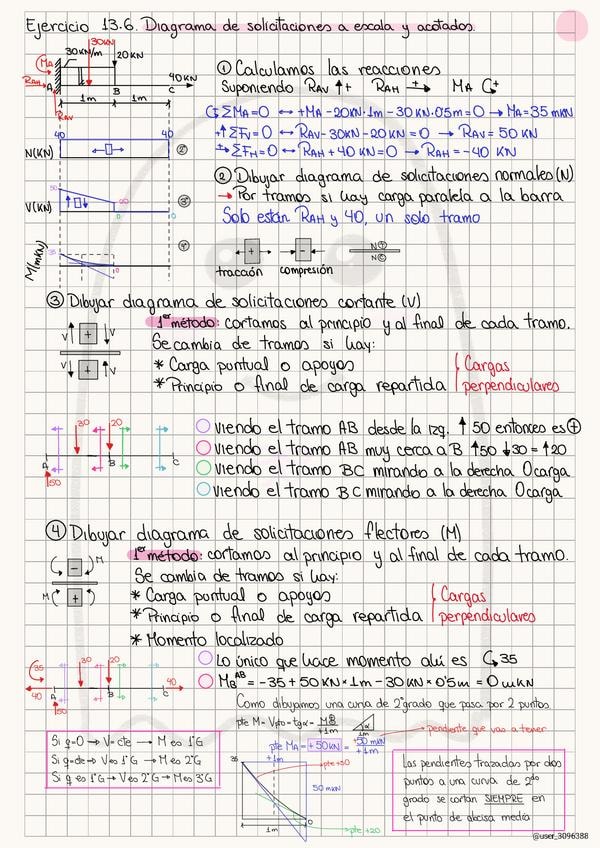 Ejercicio 13.6. Diagrama de solicitaciones a escala y acotados.
30KN
30KN/m
20KN
MA
40KN
RAH
A
B
C
1m
1m
RAV
① Calculamos las reacciones
Suponiendo RAV ↑+ RAH +→ MA
ΣMA=0 ↔ +MA-20KN·1m-30KN·0'5m=0 → MA=35mKN
+↑ΣFV=0 ↔ RAV-30KN-20KN=0 → RAV=50 KN
+→ΣFH=0 ↔ RAH+40KN=0 → RAH=-40 KN
40
40
N(KN)
②
② Dibujar diagrama de solicitaciones normales(N)
→ Por tramos si hay carga paralela a la barra
Solo están RAH y 40, un solo tramo
50
20
V(KN)
0
0
③
+
-
N⊕
N⊖
tracción
compresión
M(mKN)
35
0
④
③ Dibujar diagrama de solicitaciones cortante (V)
1er método: cortamos al principio y al final de cada tramo.
Se cambia de tramos si hay:
* Carga puntual o apoyos
* Principio o final de carga repartida
Cargas
perpendiculares
V↑ + ↓V
V↓ - ↑V
30
20
A
B
C
50
viendo el tramo AB desde la izq. ↑ 50 entonces es ⊕
viendo el tramo AB muy cerca a B ↑50 ↓30 = ↑20
viendo el tramo BC mirando a la derecha 0 carga
viendo el tramo BC mirando a la derecha 0 carga
④ Dibujar diagrama de solicitaciones flectores (M)
1er método: cortamos al principio y al final de cada tramo.
Se cambia de tramos si hay:
* Carga puntual o apoyos
* Principio o final de carga repartida
* Momento localizado
Cargas
perpendiculares
- M
M +
35
30
20
40
40
A
B
C
50
Lo único que hace momento ahí es 35
MB^AB = -35 + 50 KN × 1m - 30KN × 0'5m = 0 mKN
Como dibujamos una curva de 2º grado que pasa por 2 puntos
pendiente que vas a tener
+1m
pte MA = +50KN = +50 mKN / +1m
Si q=0 → V= cte → M es 1ºG
Si q=cte → V es 1ºG → M es 2ºG
Si q es 1ºG → V es 2ºG → M es 3ºG
35
+1m
pte +50
50 mKN
0
1m
pte +20
Las pendientes trazadas por dos
puntos a una curva de 2do
grado se cortan SIEMPRE en
el punto de abcisa media
@user_3096388